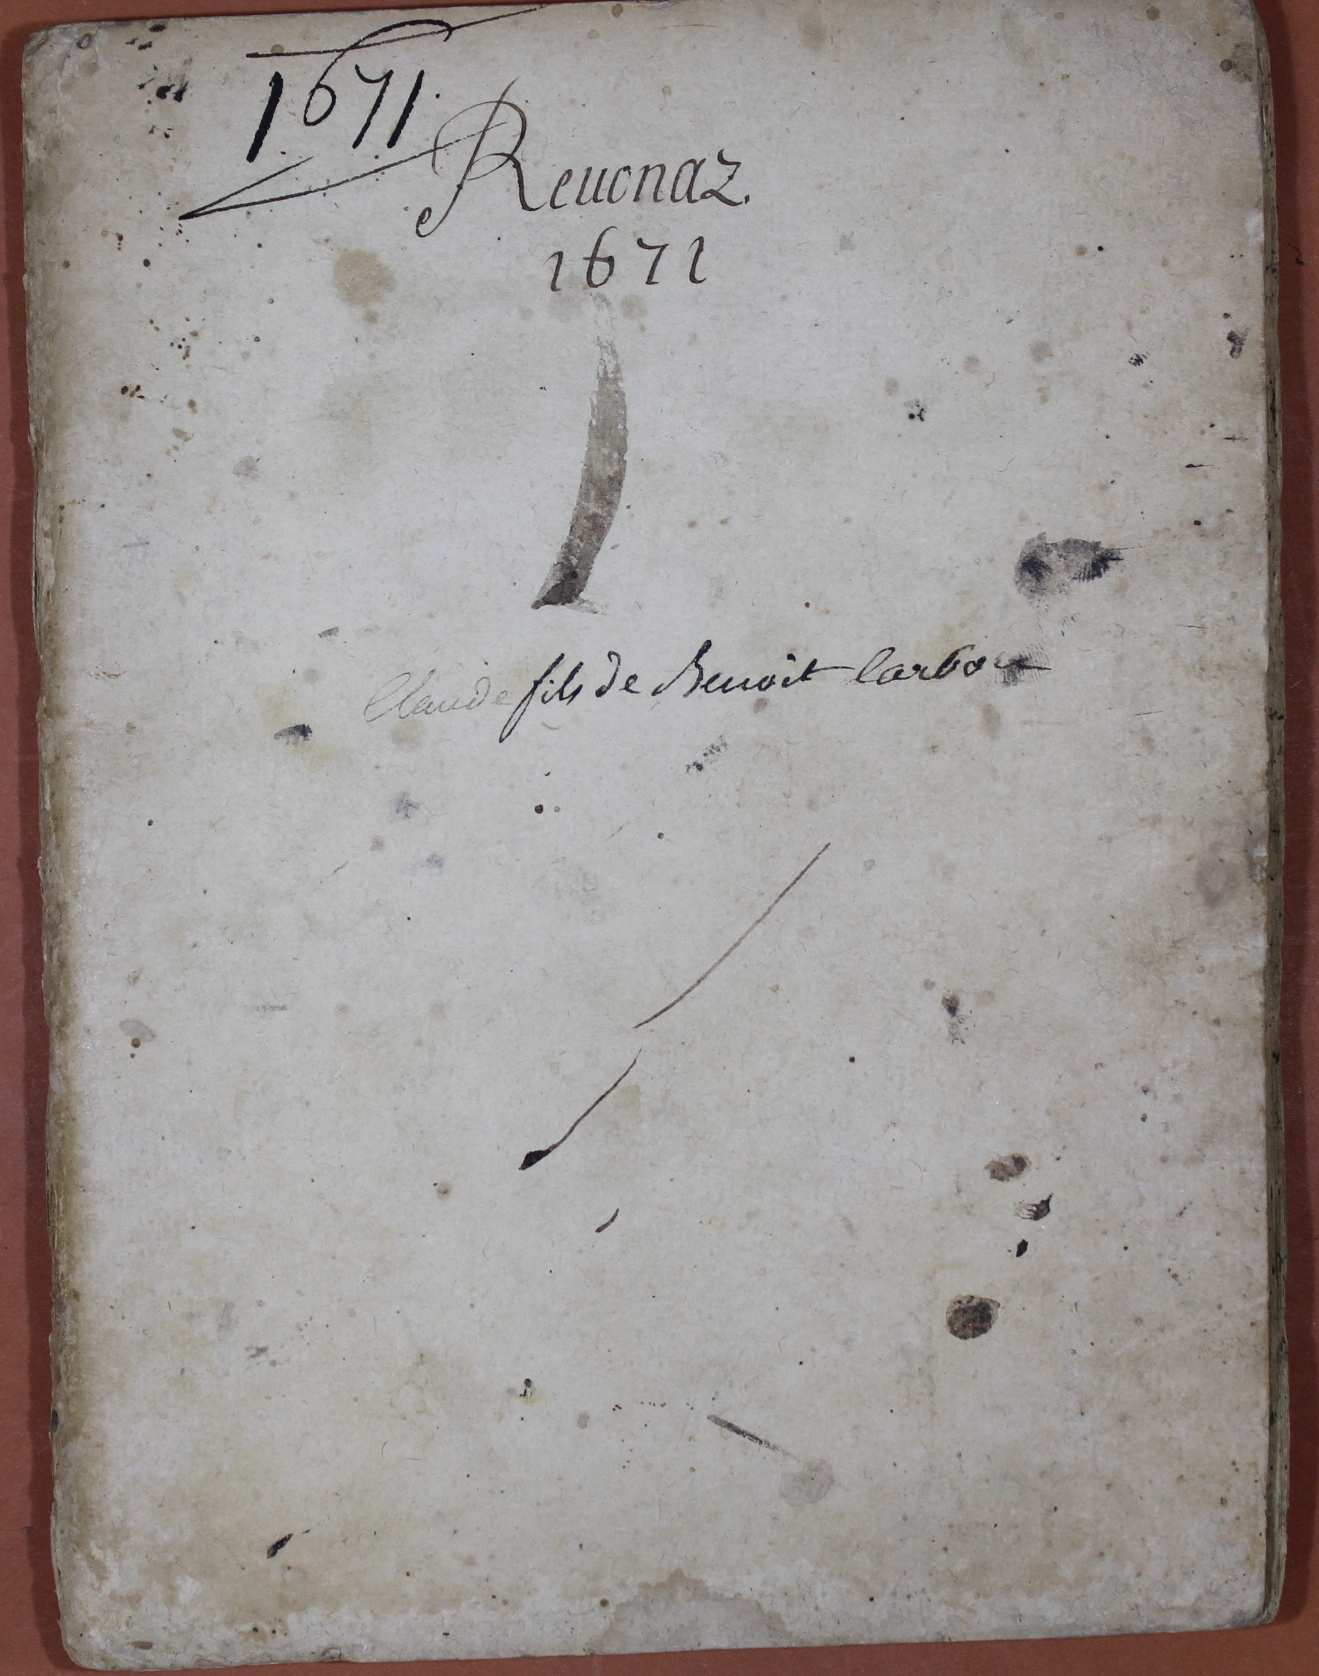 1671.
Reuonaz.
1671
Claude fils de Benoit